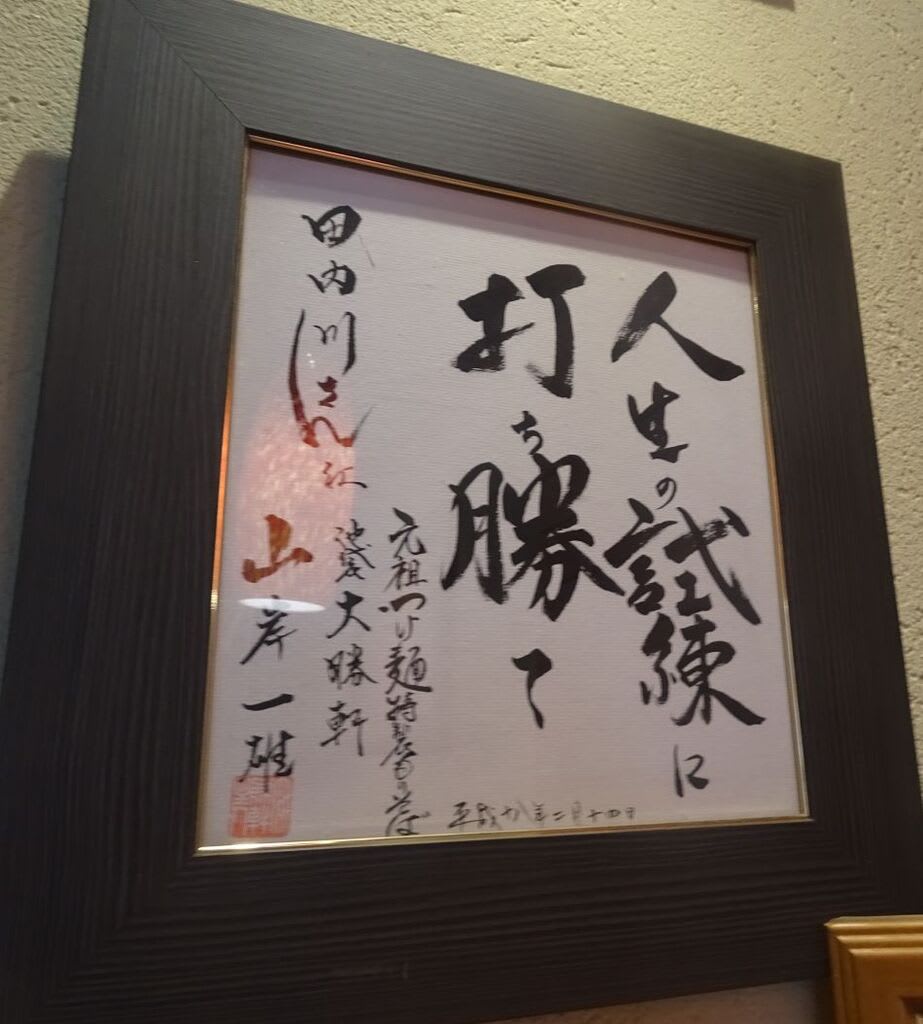 人生の試練に
打ち勝て
元祖つけ麺特製もりそば
池袋大勝軒
田内川さん江
山岸一雄
平成十八年二月十四日